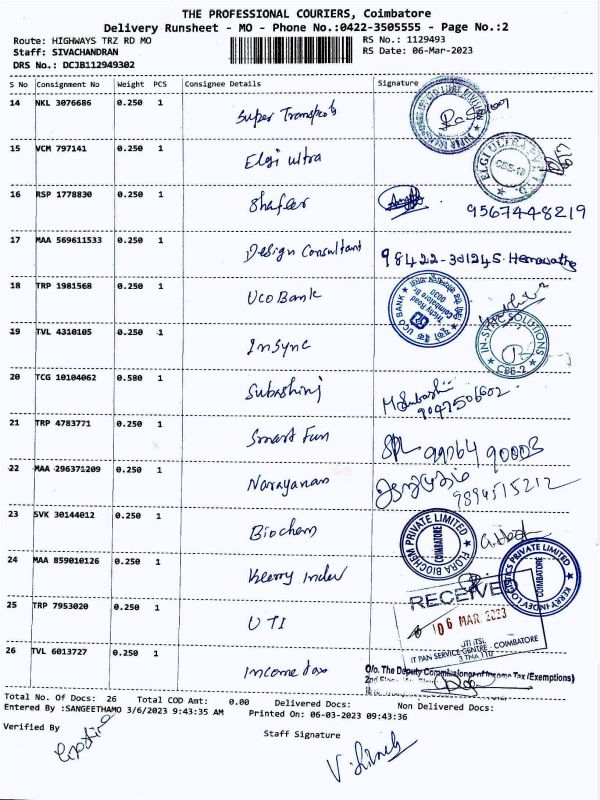 THE PROFESSIONAL COURIERS, Coimbatore
Delivery Runsheet - MO - Phone No.:0422-3505555 - Page No.:2
Route: HIGHWAYS TRZ RD MO RS No.: 1129493
Staff: SIVACHANDRAN RS Date: 06-Mar-2023
DRS No.: DCJB112949302
S No Consignment No Weight PCS Consignee Details Signature
14 NKL 3076686 0.250 1 Super Transports
15 VCM 797141 0.250 1 Elgi ultra
16 RSP 1778830 0.250 1 Shafeer 9567448219
17 MAA 569611533 0.250 1 Design Consultant 98422-301245. Hemavathe
18 TRP 1981568 0.250 1 Uco Bank UCO BANK
19 TVL 4310105 0.250 1 Insync IN-SYNC SOLUTIONS CBE-2
20 TCG 10104062 0.580 1 Subashinj M Subashi 9047506602
21 TRP 4783771 0.250 1 Smart Fun 99064 90003
22 MAA 296371209 0.250 1 Narayanan 9894515212
23 SVK 30144012 0.250 1 Biochem FLORA BIOCHEM PRIVATE LIMITED COIMBATORE
24 MAA 859010126 0.250 1 Kerry Indev KERRY INDEV LOGISTICS PRIVATE LIMITED COIMBATORE
25 TRP 7953020 0.250 1 UTI RECEIVED
06 MAR 2023
UTI ITSL
IT PAN SERVICE CENTRE - COIMBATORE
26 TVL 6013727 0.250 1 Income tax O/o. The Deputy Commissioner of Income Tax (Exemptions)
Total No. Of Docs: 26 Total COD Amt: 0.00 Delivered Docs: Non Delivered Docs:
Entered By :SANGEETHAMO 3/6/2023 9:43:35 AM Printed On: 06-03-2023 09:43:36
Verified By Staff Signature